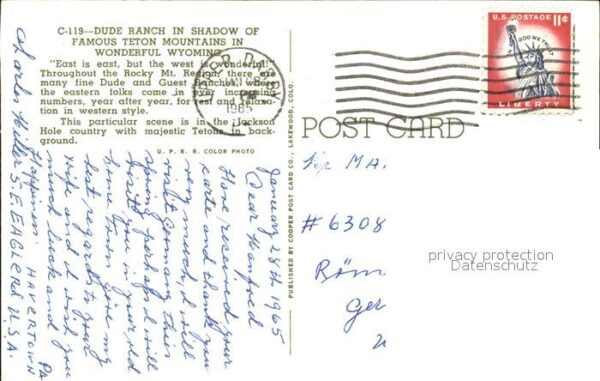 C-119—DUDE RANCH IN SHADOW OF
FAMOUS TETON MOUNTAINS IN
WONDERFUL WYOMING
"East is east, but the west is wonderful!
Throughout the Rocky Mt. Region, there are
many fine Dude and Guest Ranches, where
the eastern folks come in ever increasing
numbers, year after year, for rest and relaxa-
tion in western style.
This particular scene is in the Jackson
Hole country with majestic Tetons in back-
ground.
U. P. R. R. COLOR PHOTO
PUBLISHED BY COOPER POST CARD CO., LAKEWOOD, COLO.
POST CARD
U.S. POSTAGE 11¢
IN GOD WE TRUST
LIBERTY
JAN 28
PM
1965
January 28th 1965
Dear Manfred
Have received your
card and thank you
very much, I will
visit Germany this
spring perhaps I will
visit you in your old
home town give my
best regards to your
wife and I wish you
much luck and
Happiness.
Charles Miller S.E. EAGLERS U.S.A.
HAVERTOWN
PA
MA.
#6308
Ger
privacy protection
Datenschutz